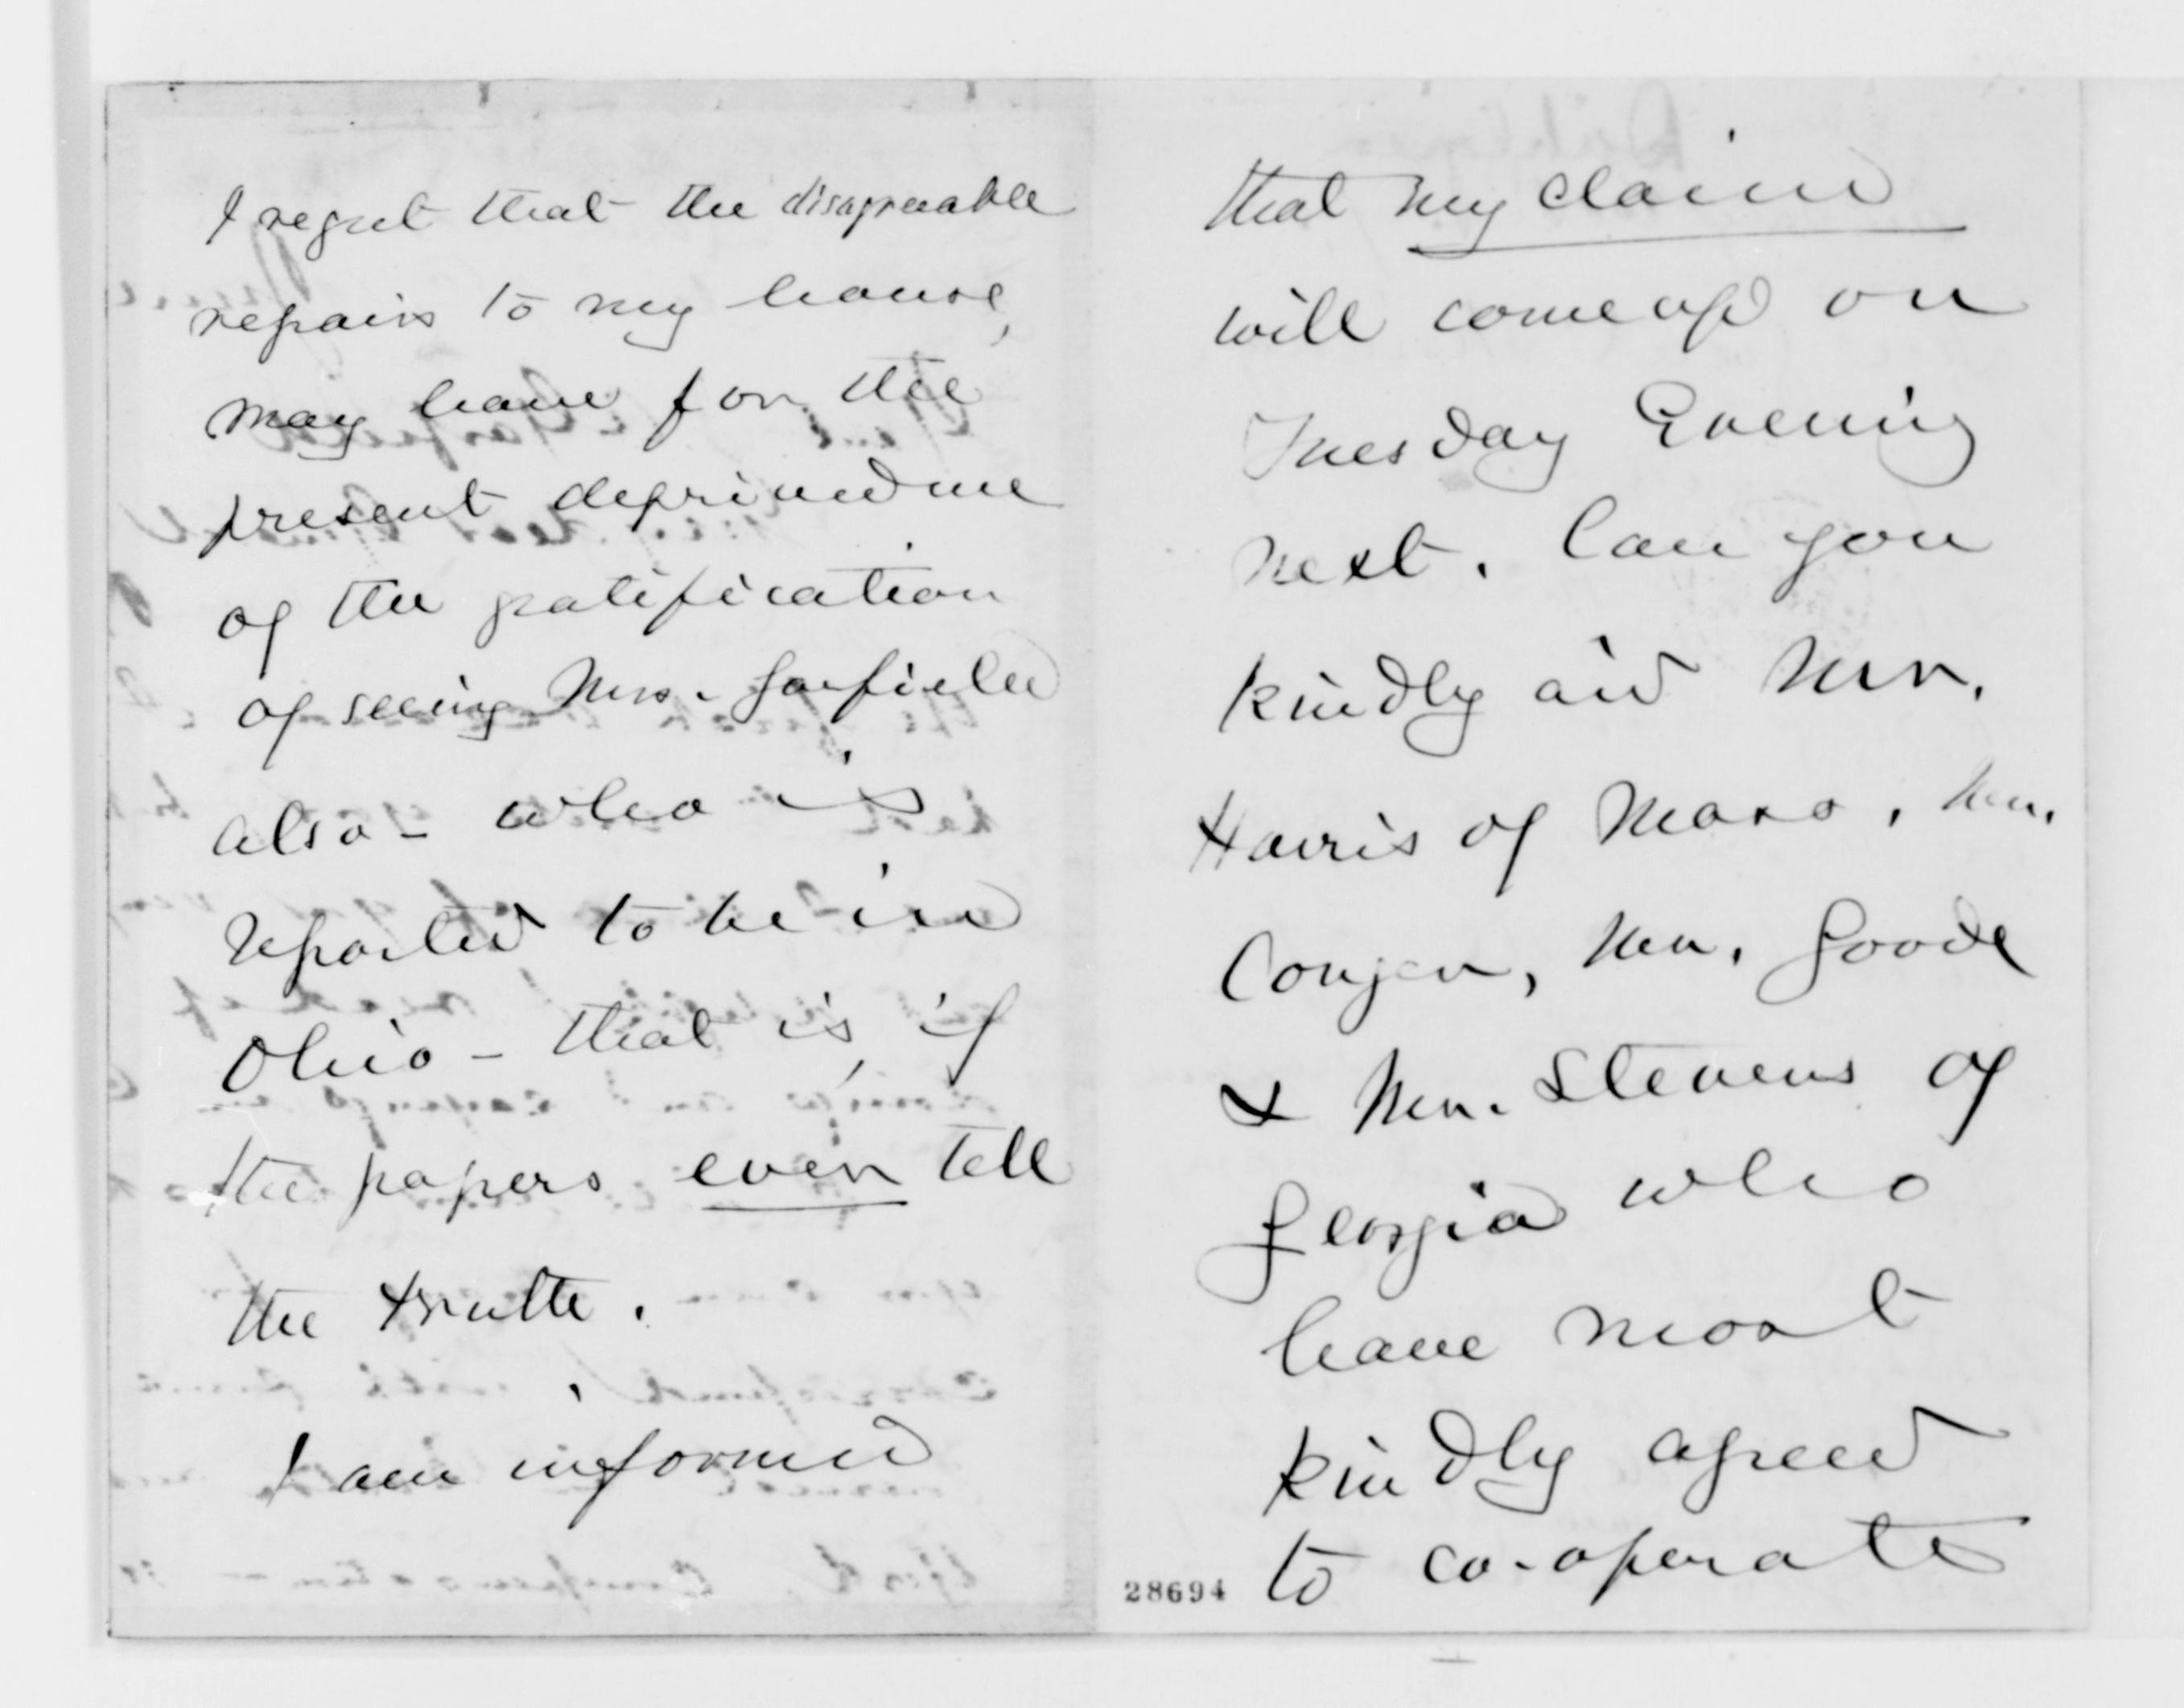 I regret that the disagreeable
repairs to my house,
may have for the
present deprived me
of the gratification
of seeing Mrs. Garfield
also - who is
reported to be in
Ohio - that is, if
the papers even tell
the truth.
I am informed
that my claim
will come up on
Tuesday Evening
next. Can you
kindly aid Mr.
Harris of Mass, Mr.
Conger, Mr. Goode
& Mr. Stevens of
Georgia who
have most
kindly agreed
to co-operate
28694